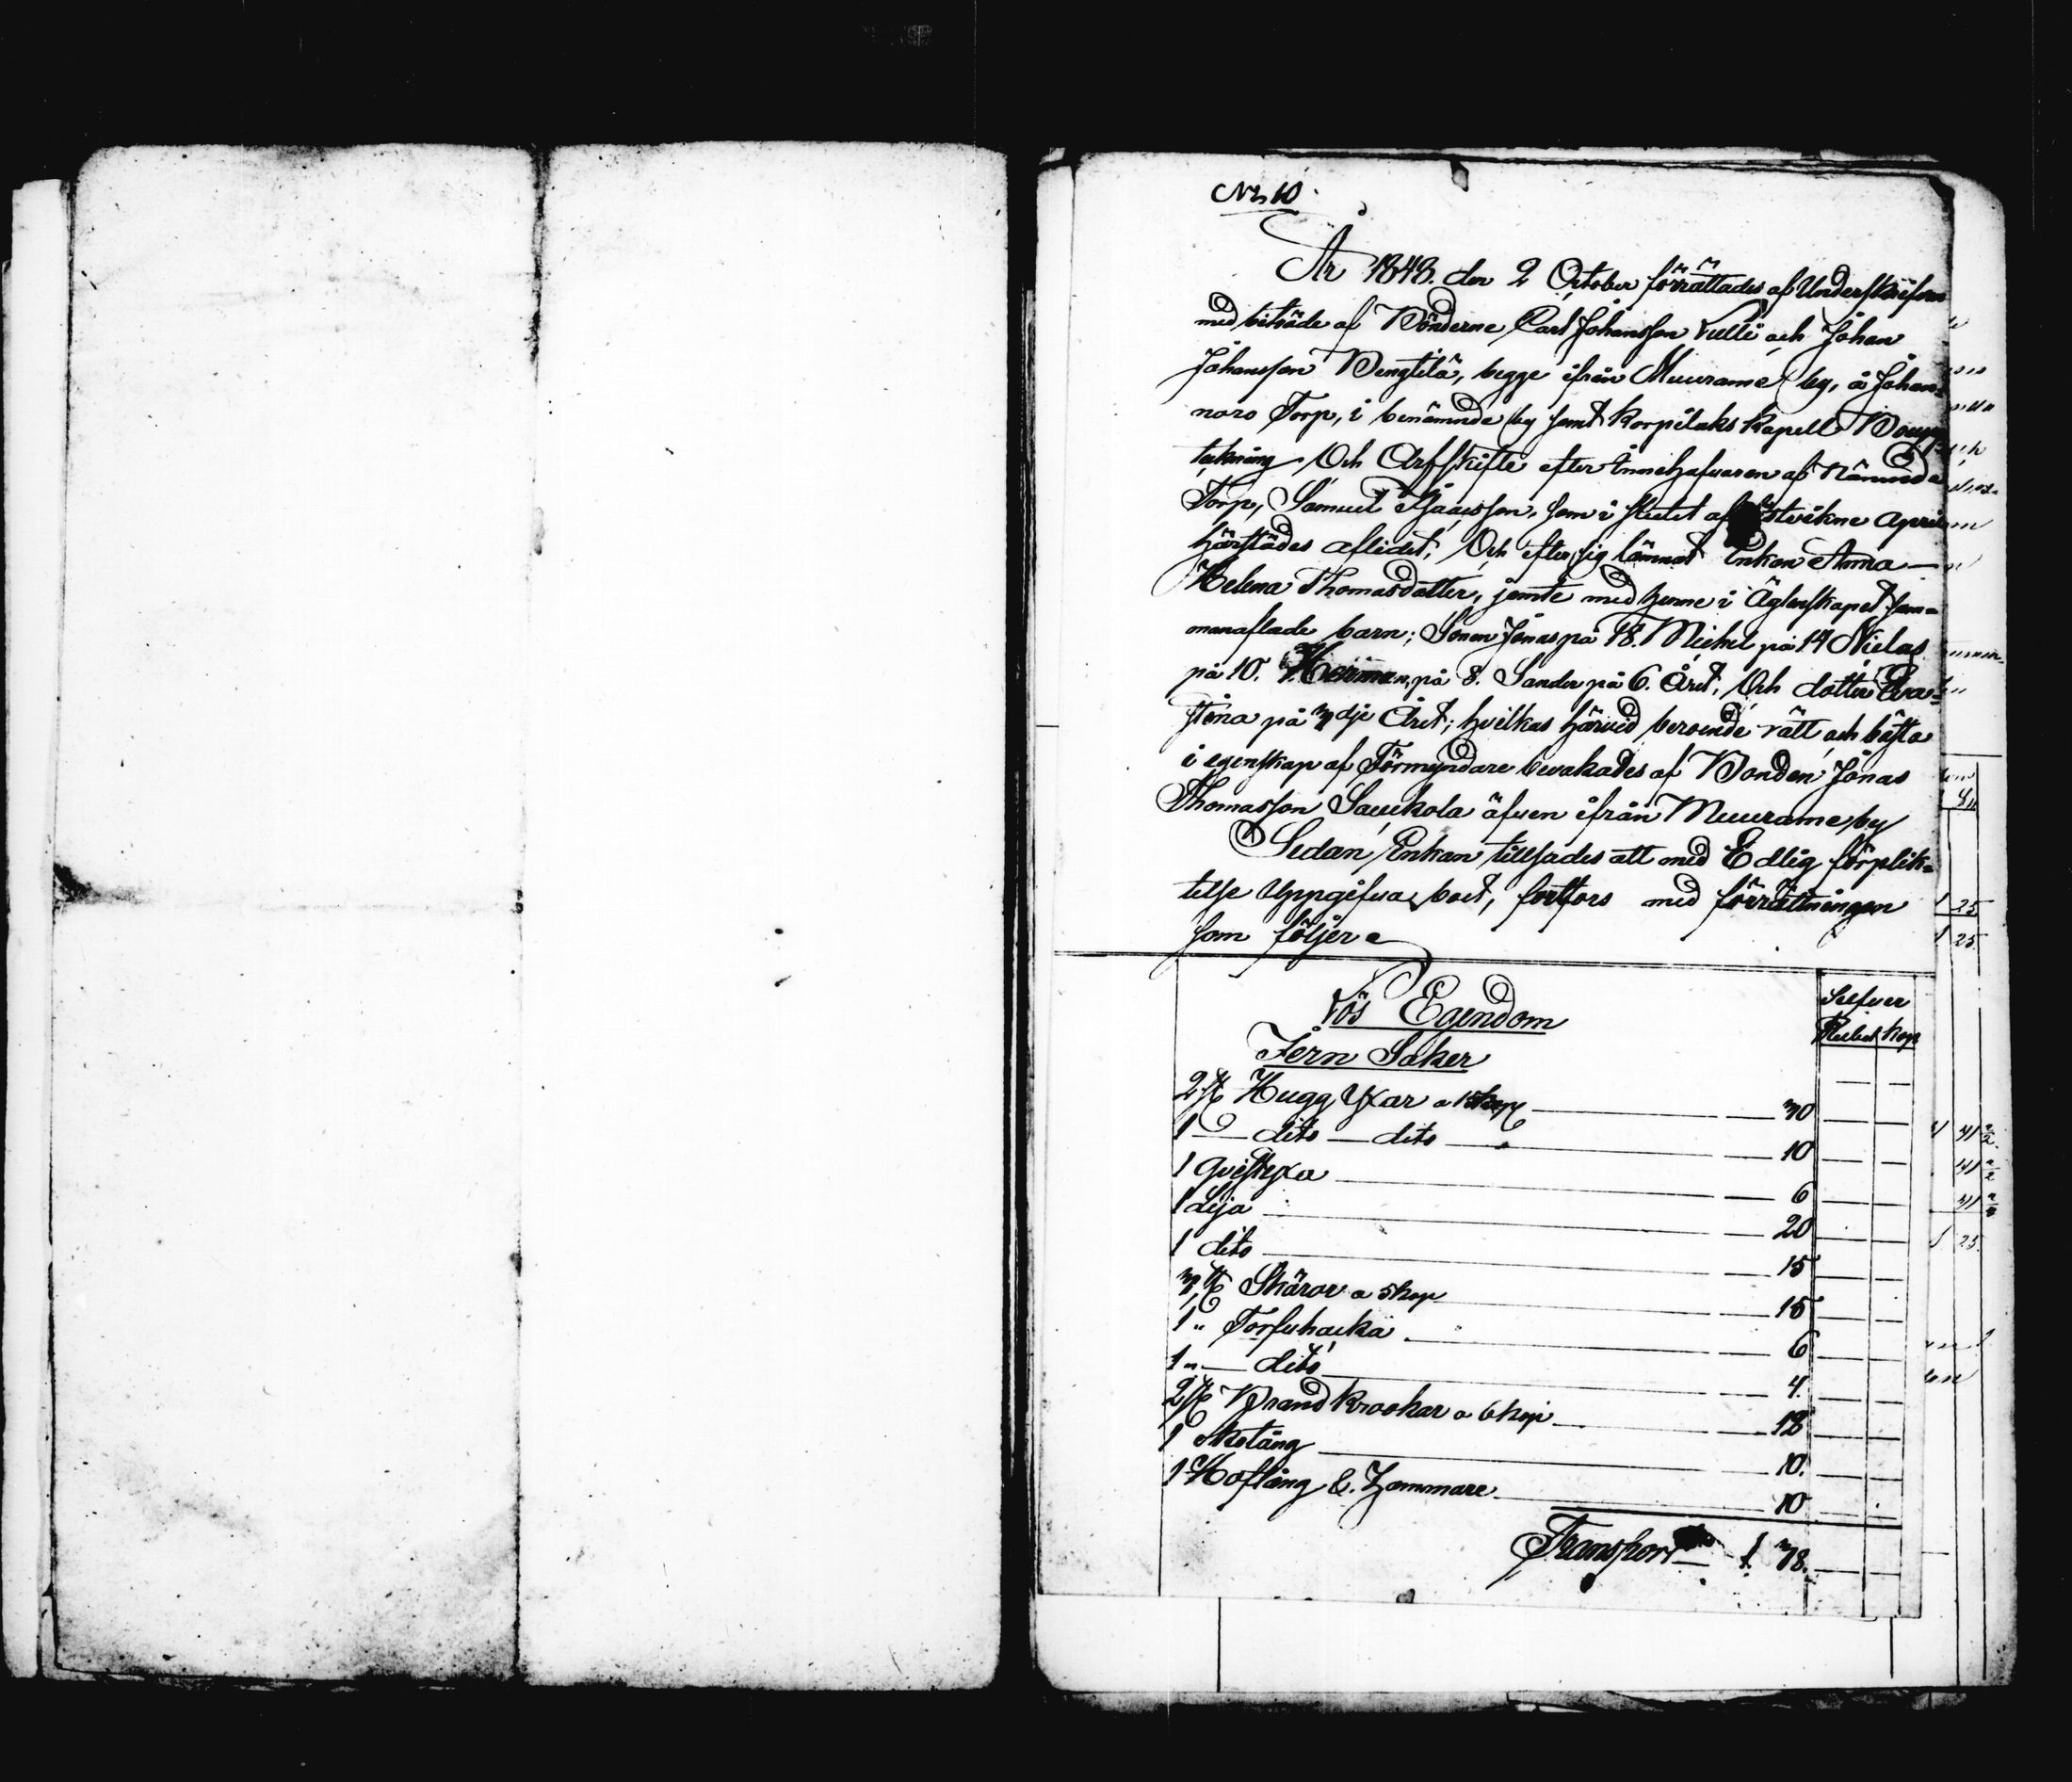 No 10
År 1848. den 2 October förrättades af Underskrefven
med biträde af Bönderne Carl Johansson Rulli och Johan
Johansson Bengtilä, begge ifrån Muurame by, å Johan-
noro Torp, i benämnde by samt Korpilaks Kapell Boupp
tekning Och Arfskifte efter Innehafvaren af Nämnde
Torp, Samuel Isaacsson, som i slutet af sistvikne April
härstädes aflidet, Och efter sig lämnat Enkan Anna
Helena Thomasdotter, jemte med henne i Äglenskapet sam-
manaflade barn; Sonen Jonas på 18. Michel på 14 Nielas
på 10. Herman på 8. Sander på 6. Året, Och dotter Eva-
stina på 3dje Året; hvilkas härvid beroende rätt och bästa
i egenskap af Förmyndare bevakades af Bonden Jonas
Thomasson Saukola äfven ifrån Muurame by
Sedan Enkan tillsades att med Edlig förplik-
telse Uppgifva boet, fortfors med förrättningen
som följer
Lös Egendom
Silfver
Rubel kop
Jern Saker
2 st Hugg Yxar a 15 kop 30
1 dito dito 10
1 Qvistyxa 6
1 Lija 20
1 dito 15
3 st Skäror a 5 kop 15
1 " Torfuhacka 6
1 " dito 4.
2 st Brand Krookar a 6 kop 12
1 Skotång 10.
1 Hoftång & Hammare 10
Transport 1 38.